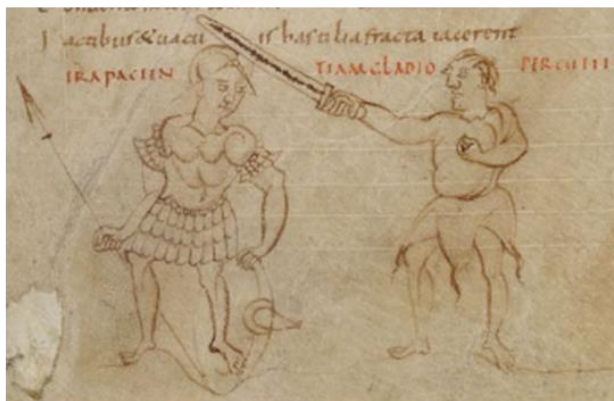 I actibus & uacu is hastilia fracta iacerent
IRA PACIEN TIAM GLADIO PERCUTIT